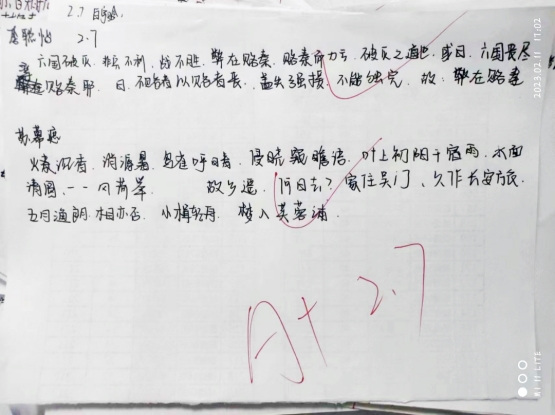 2.7
2.7
六国破灭,非兵不利,战不胜,弊在赂秦,赂秦而力亏,破灭之道也,或曰,六国丧尽
赂秦耶,曰,不赂者以赂者丧,盖失强援,不能独完,故,弊在赂秦
苏幕遮
燎沉香,消溽暑,鸟雀呼晴,侵晓窥檐语,叶上初阳干宿雨,水面
清圆,一一风荷举 故乡遥,何日去?家住吴门,久作长安旅,
五月渔郎相忆否,小楫轻舟,梦入芙蓉浦.
A+ 2.7
2023.02.11 17:02
MI 11 LITE